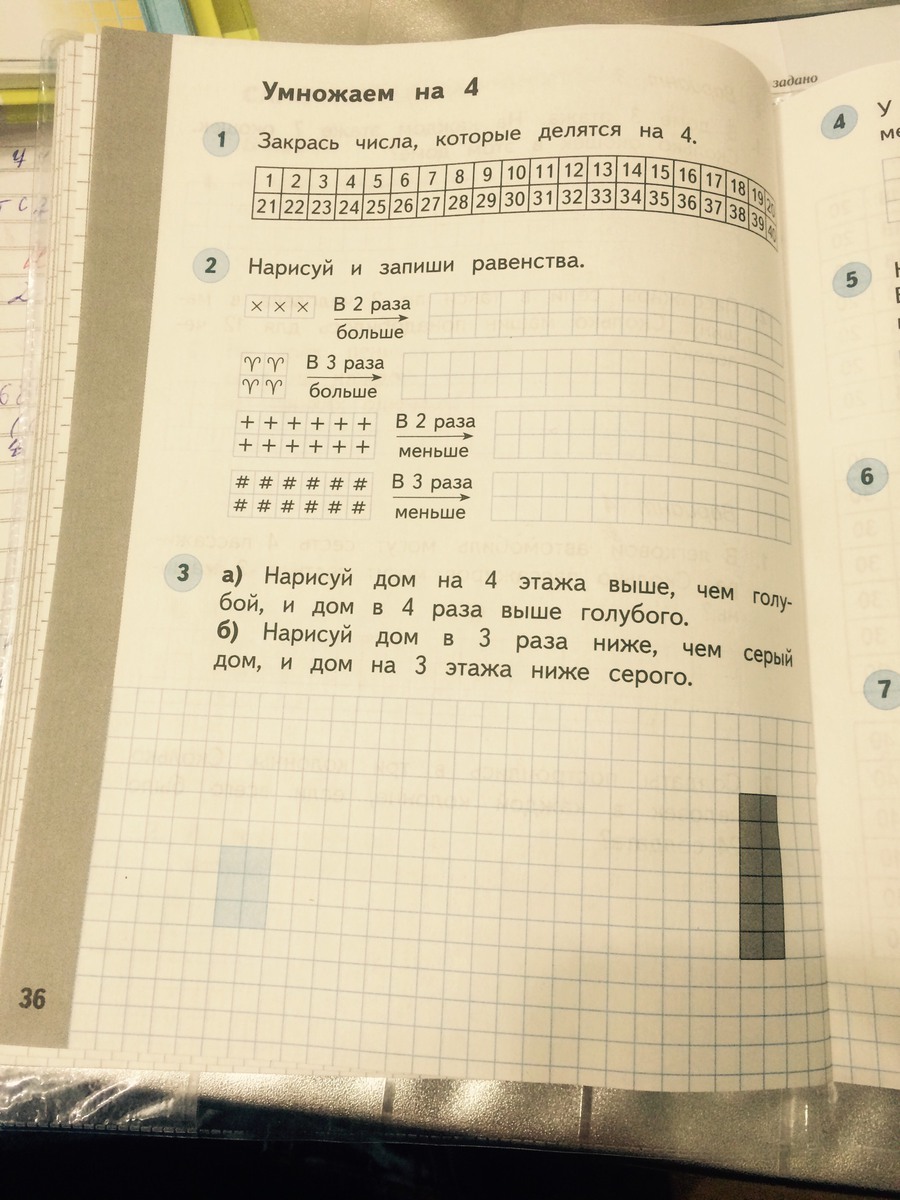 Умножаем на 4
задано
1 Закрась числа, которые делятся на 4.
1 2 3 4 5 6 7 8 9 10 11 12 13 14 15 16 17 18 19 20
21 22 23 24 25 26 27 28 29 30 31 32 33 34 35 36 37 38 39 40
2 Нарисуй и запиши равенства.
× × × В 2 раза
больше
♈ ♈ В 3 раза
♈ ♈ больше
+ + + + + + В 2 раза
+ + + + + + меньше
# # # # # # В 3 раза
# # # # # # меньше
3 а) Нарисуй дом на 4 этажа выше, чем голу-
бой, и дом в 4 раза выше голубого.
б) Нарисуй дом в 3 раза ниже, чем серый
дом, и дом на 3 этажа ниже серого.
36
4 У
5
6
7